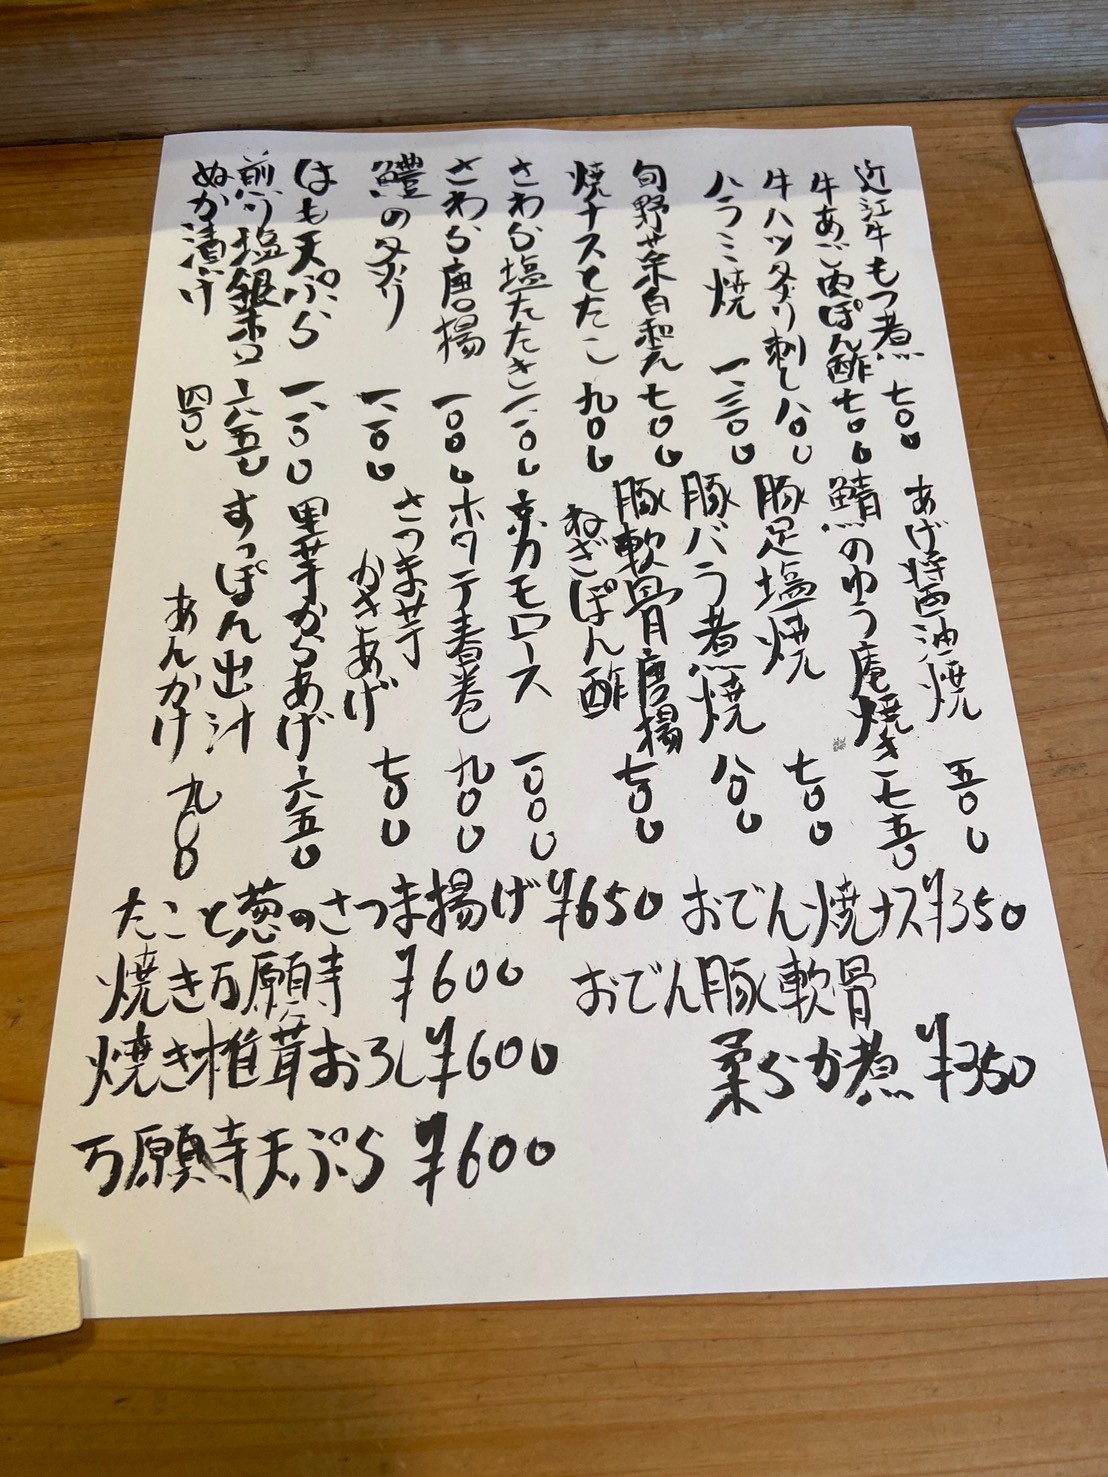 近江牛もつ煮 七〇〇
牛あご肉ぽん酢 七〇〇
牛ハツ炙り刺し 八〇〇
ハラミ焼 一、三〇〇
旬野菜白和え 七〇〇
焼ナスとたこ 九〇〇
さわら塩たたき 一、一〇〇
さわら唐揚 一〇〇〇
鱧の炙り 一、一〇〇
はも天ぷら 一、一〇〇
煎り塩銀杏 六五〇
ぬか漬け 四〇〇
あげ醤油焼 五〇〇
鯖のゆう庵焼き 七五〇
豚足塩焼 七〇〇
豚バラ煮焼 八〇〇
豚軟骨唐揚
ねぎぽん酢 七〇〇
京カモロース 一〇〇〇
ホタテ春巻 九〇〇
さつま芋
かきあげ 七〇〇
里芋からあげ 六五〇
すっぽん出汁
あんかけ 九〇〇
たこと葱のさつま揚げ ¥650
焼き万願寺 ¥600
焼き椎茸おろし ¥600
万願寺天ぷら ¥600
おでん焼ナス ¥350
おでん豚軟骨
柔らか煮 ¥350